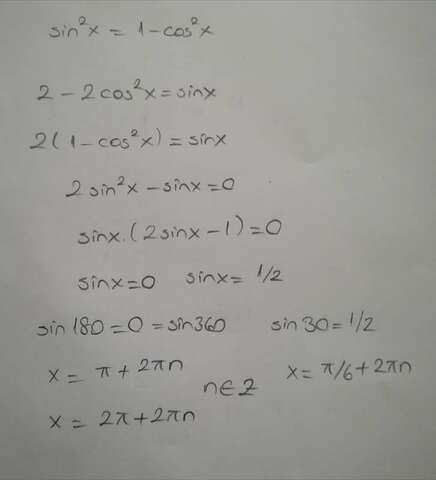 sin²x = 1 - cos²x
2 - 2cos²x = sinx
2(1 - cos²x) = sinx
2sin²x - sinx = 0
sinx.(2sinx - 1) = 0
sinx = 0 sinx = 1/2
sin180 = 0 = sin360 sin30 = 1/2
x = π + 2πn n∈Z x = π/6 + 2πn
x = 2π + 2πn